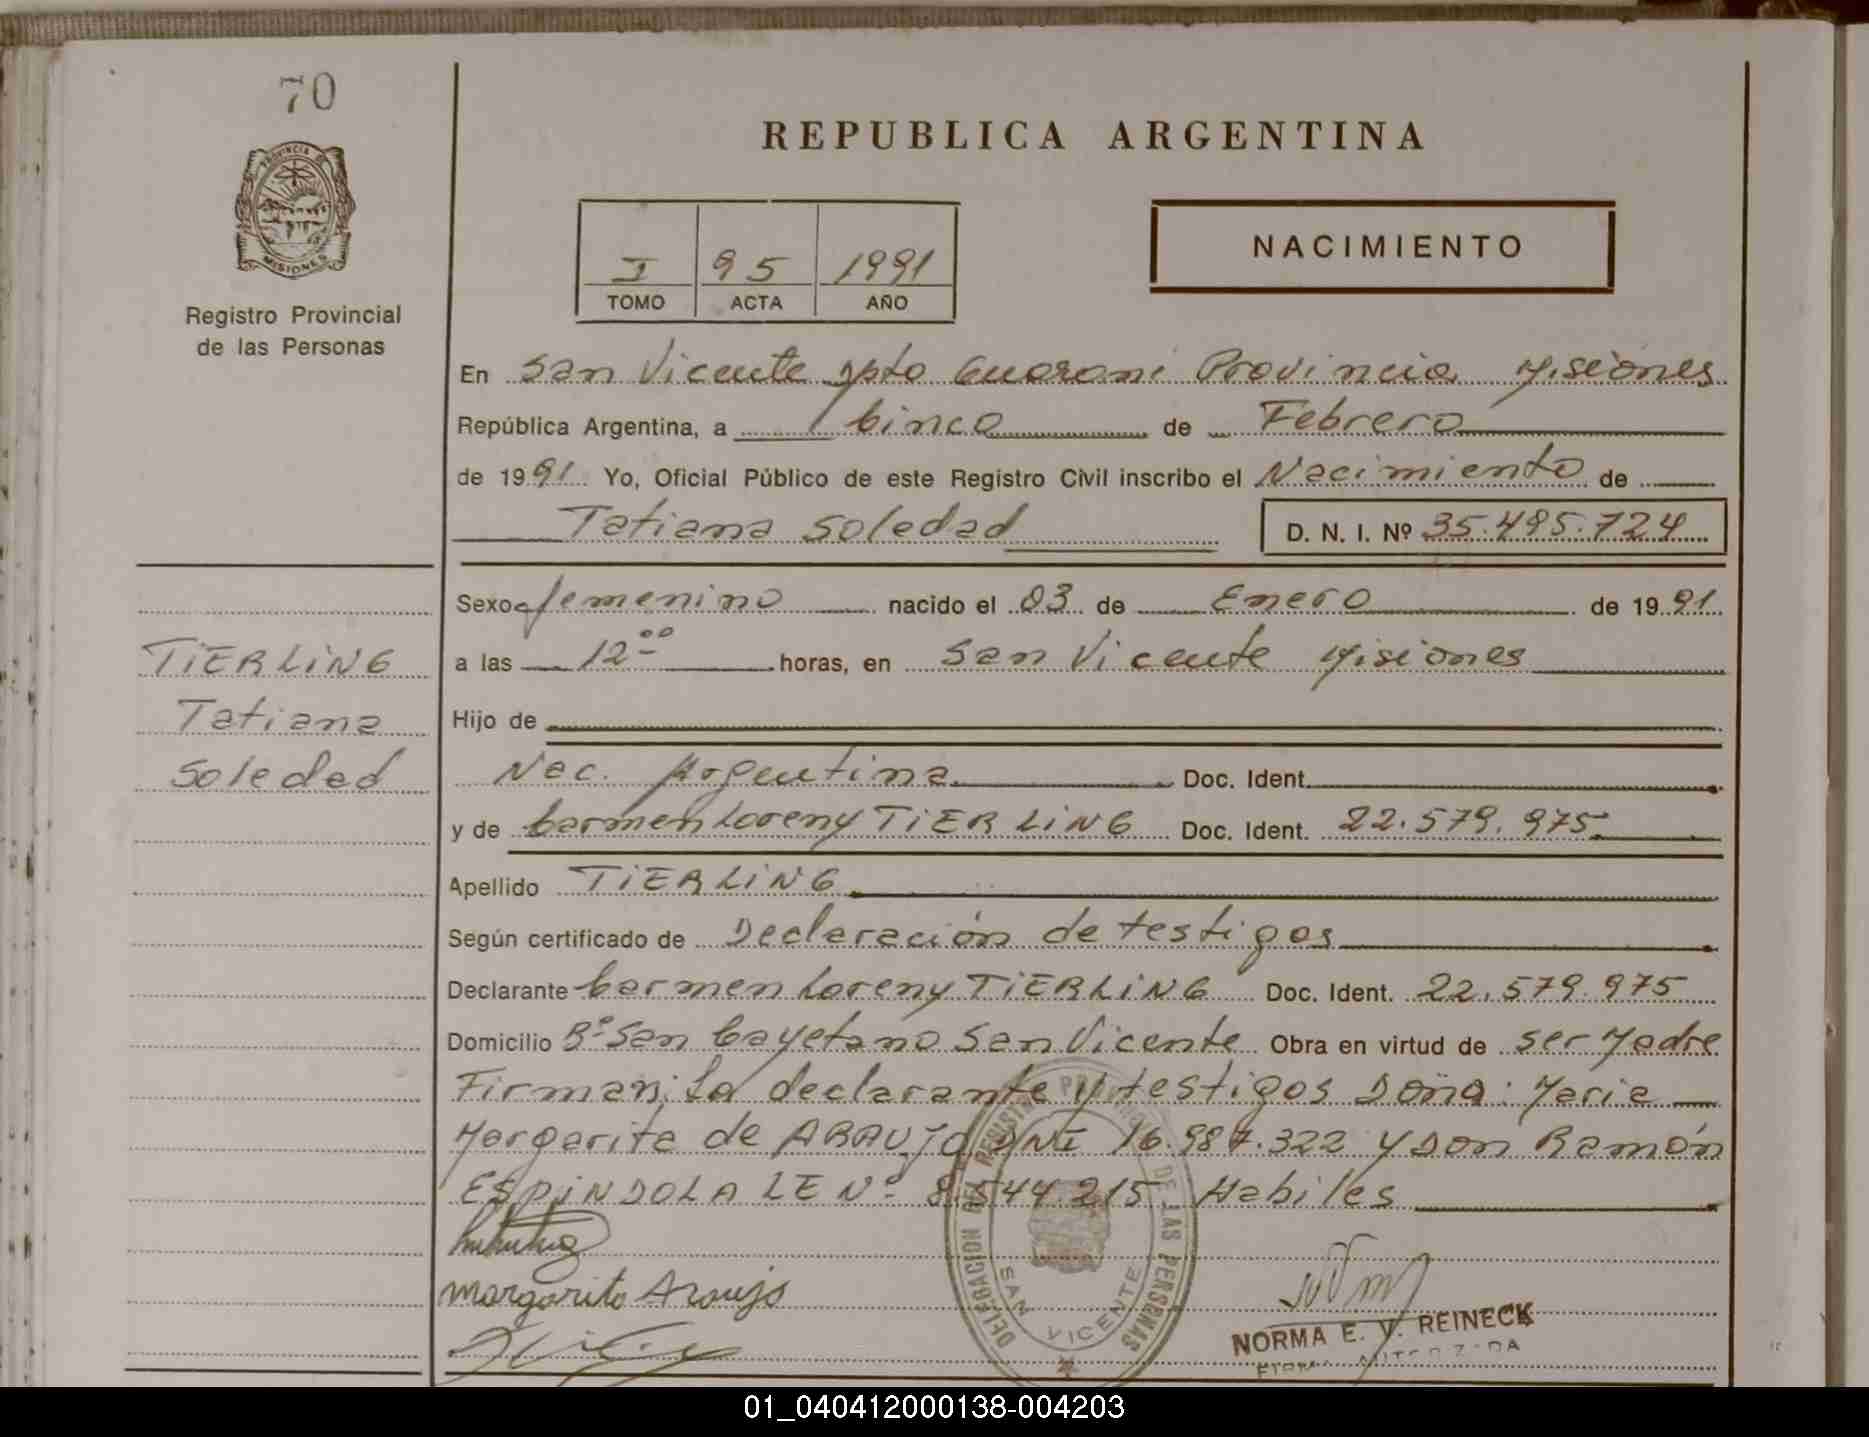 70
REPUBLICA ARGENTINA
PROVINCIA DE
MISIONES
Registro Provincial
de las Personas
I 95 1991
TOMO ACTA AÑO
NACIMIENTO
En San Vicente Dpto Guarani Provincia Misiones
República Argentina, a Cinco de Febrero
de 1991 Yo, Oficial Público de este Registro Civil inscribo el Nacimiento de
Tatiana Soledad D. N. I. Nº 35.495.724
Sexo femenino nacido el 03 de Enero de 1991
a las 12°° horas, en San Vicente Misiones
Hijo de
Nac. Argentina Doc. Ident.
y de Carmen Loreny TiERLiNG Doc. Ident. 22.579.975
Apellido TiERLiNG
Según certificado de Declaración de testigos
Declarante Carmen Loreny TiERLiNG Doc. Ident. 22.579.975
Domicilio Bº San Cayetano San Vicente Obra en virtud de ser Madre
Firman: La declarante y testigos Doña: Maria
Margarita de ARAUJO DNI 16.987.322 y Don Ramón
ESPiNDOLA LE Nº 8.544.215 Habiles
TiERLiNG
Tatiana
Soledad
margarita Araujo
DELEGACION DEL REGISTRO PROVINCIAL DE LAS PERSONAS
SAN VICENTE
NORMA E. V. REINECK
FIRMA AUTORIZADA
01_040412000138-004203